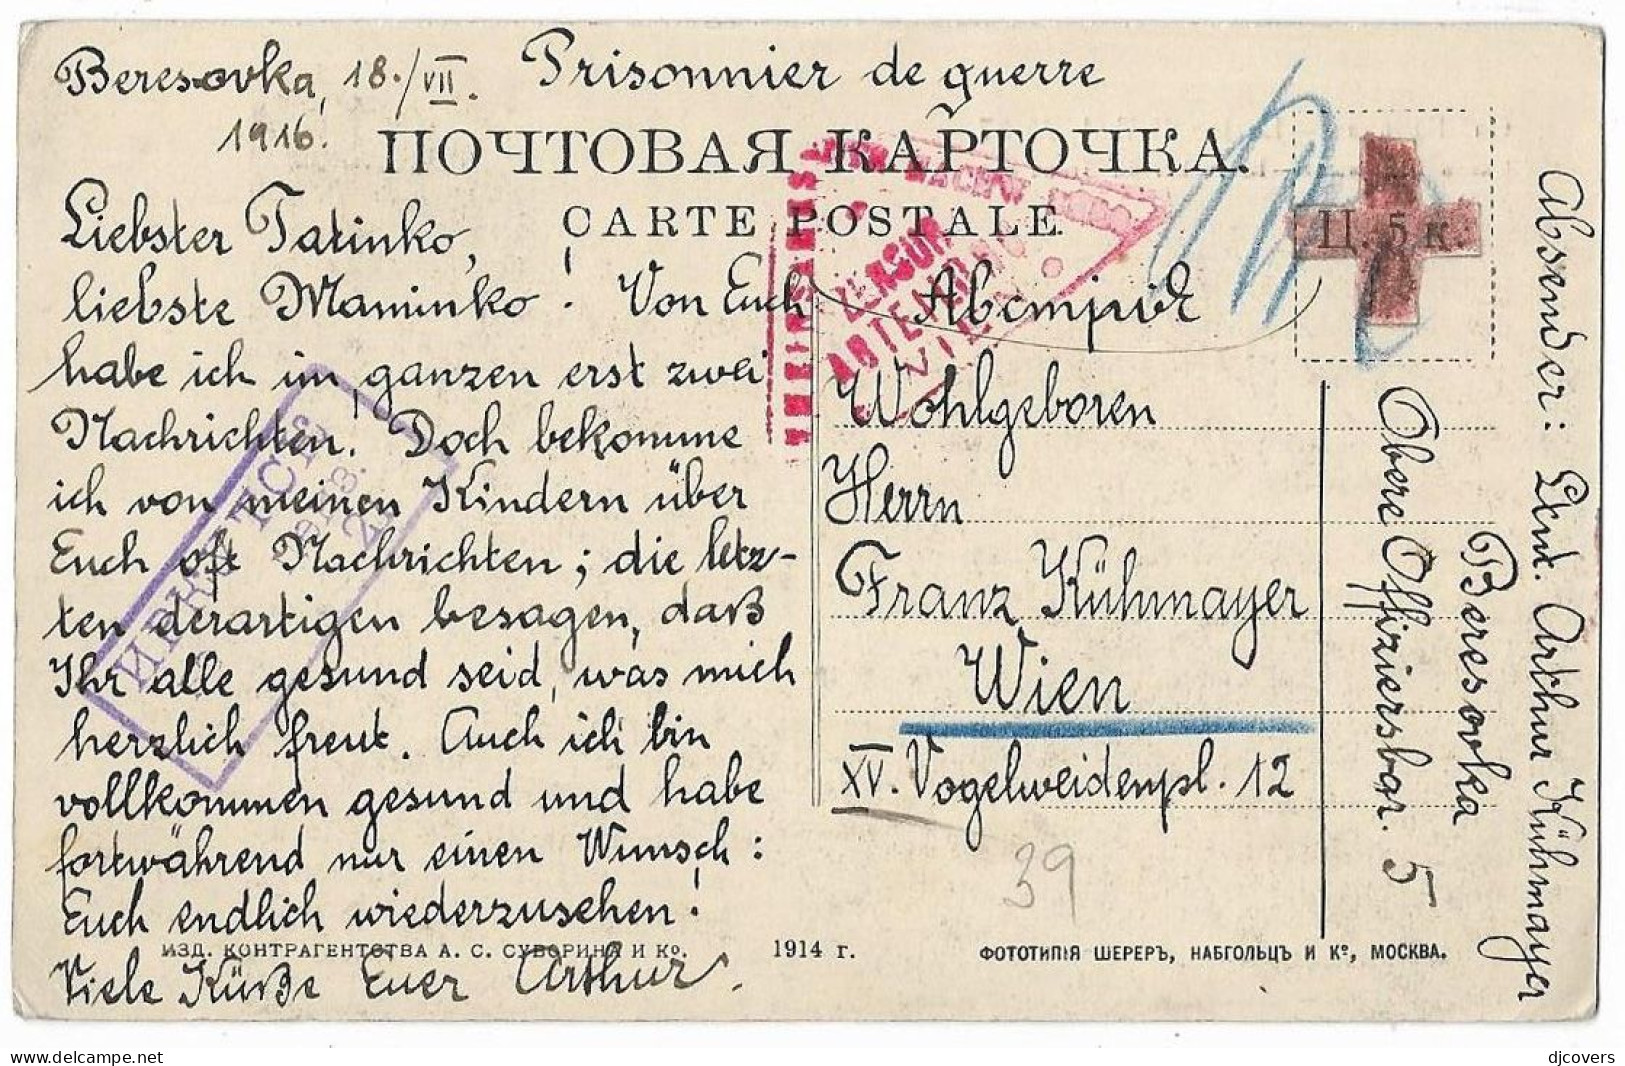 Beresovka, 18./VII.
1916.
Prisonnier de guerre
ПОЧТОВАЯ КАРТОЧКА.
CARTE POSTALE
Ц. 5 к.
Liebster Tatinko,
liebste Maminko! Von Euch
habe ich im ganzen erst zwei
Nachrichten. Doch bekomme
ich von meinen Kindern über
Euch oft Nachrichten; die letz-
ten derartigen besagen, daß
Ihr alle gesund seid, was mich
herzlich freut. Auch ich bin
vollkommen gesund und habe
fortwährend nur einen Wunsch:
Euch endlich wiederzusehen!
Viele Küße Euer Arthur.
ИРКУТСК
ZENSUR
ABTEILUNG
WIEN
Wohlgeboren
Herrn
Franz Kühmayer
Wien
XV. Vogelweidenpl. 12
39
Absender: Arthur Kühmayer
Beresovka
Obere Offiziersbar. 5
ИЗД. КОНТРАГЕНТСТВА А. С. СУВОРИНА И Кº. 1914 г.
ФОТОТИПІЯ ШЕРЕРЪ, НАБГОЛЬЦЪ И Кº, МОСКВА.
the-best-in.com
djcovers